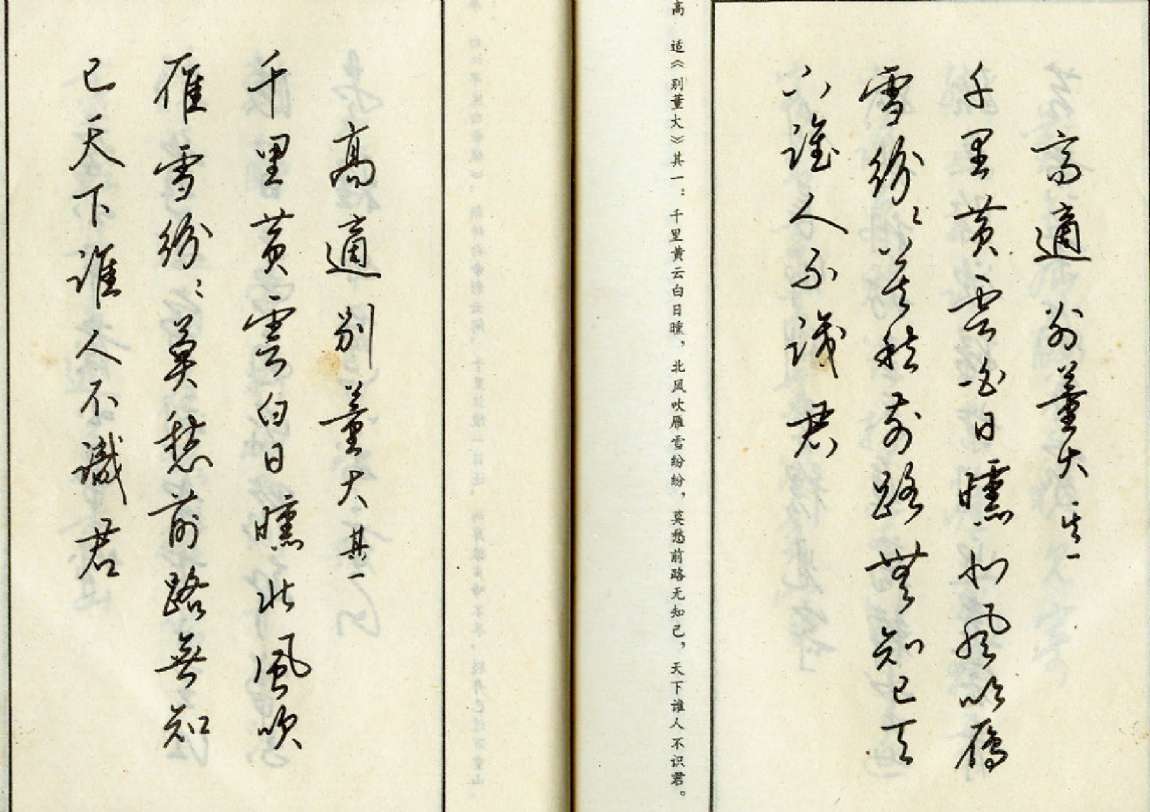 高適 别董大 其一
千里黄雲白日曛北風吹雁
雪紛〻莫愁前路無知己天
下誰人不識君
高 适《别董大》其一：千里黄云白日曛，北风吹雁雪纷纷，莫愁前路无知己，天下谁人不识君。
高適别董大其一
千里黄雲白日曛北風吹
雁雪紛〻莫愁前路無知
己天下誰人不識君